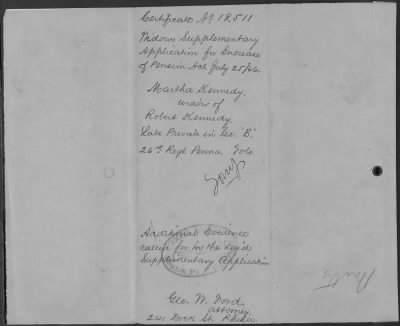 Certificate No 18,511
Widows Supplementary
Application for Increase
of Pension Act July 25/66.
Martha Kennedy,
widow of
Robert Kennedy,
Late Private in Co. "B."
26th Regt. Penna. Vols
Additional Evidence
called for in the
Supplementary Application
Geo. W. Ford
attorney
241 Dock St. Phila